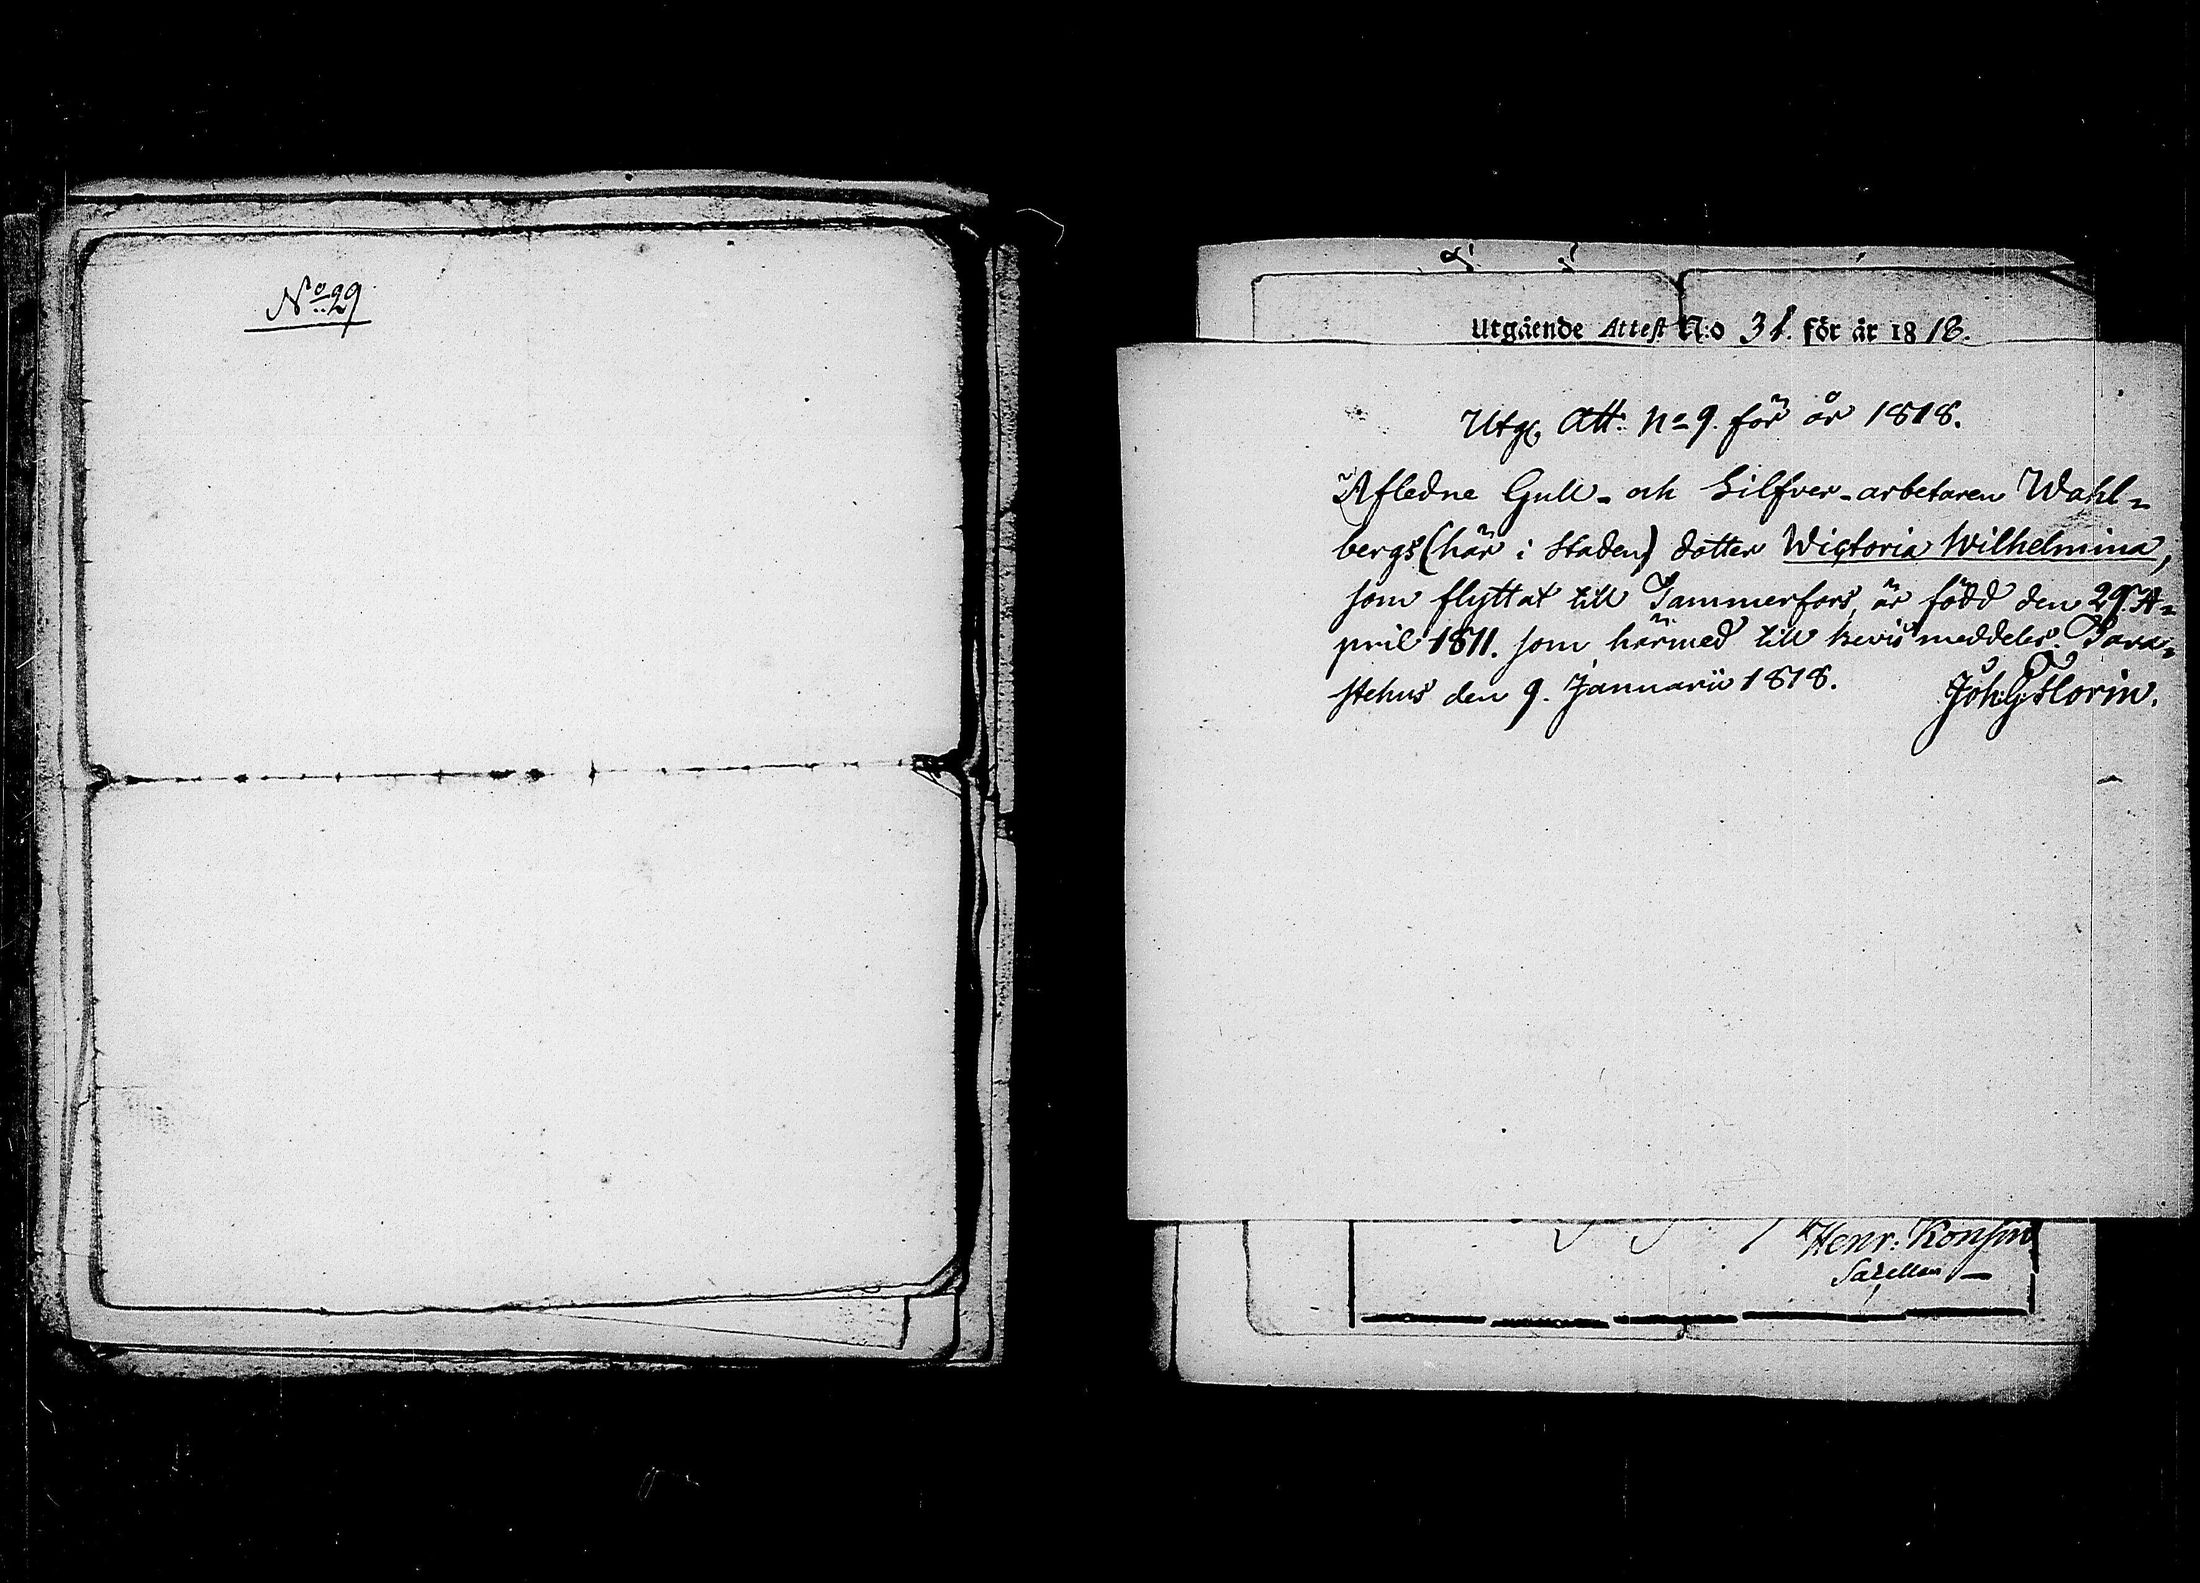 No 29
Utgående Attest N:o 31. för år 1818.
Utg. Att. No 9. för år 1818.
Afledne Gull- och Silfver-arbetaren Wahl-
bergs (här i staden) dotter Wictoria Wilhelmina,
som flyttat till Tammerfors, är född den 29. A-
pril 1811. som härmed till bevis meddeles. Tava-
stehus den 9. Januarii 1818. Joh. G. Florin.
Henr: